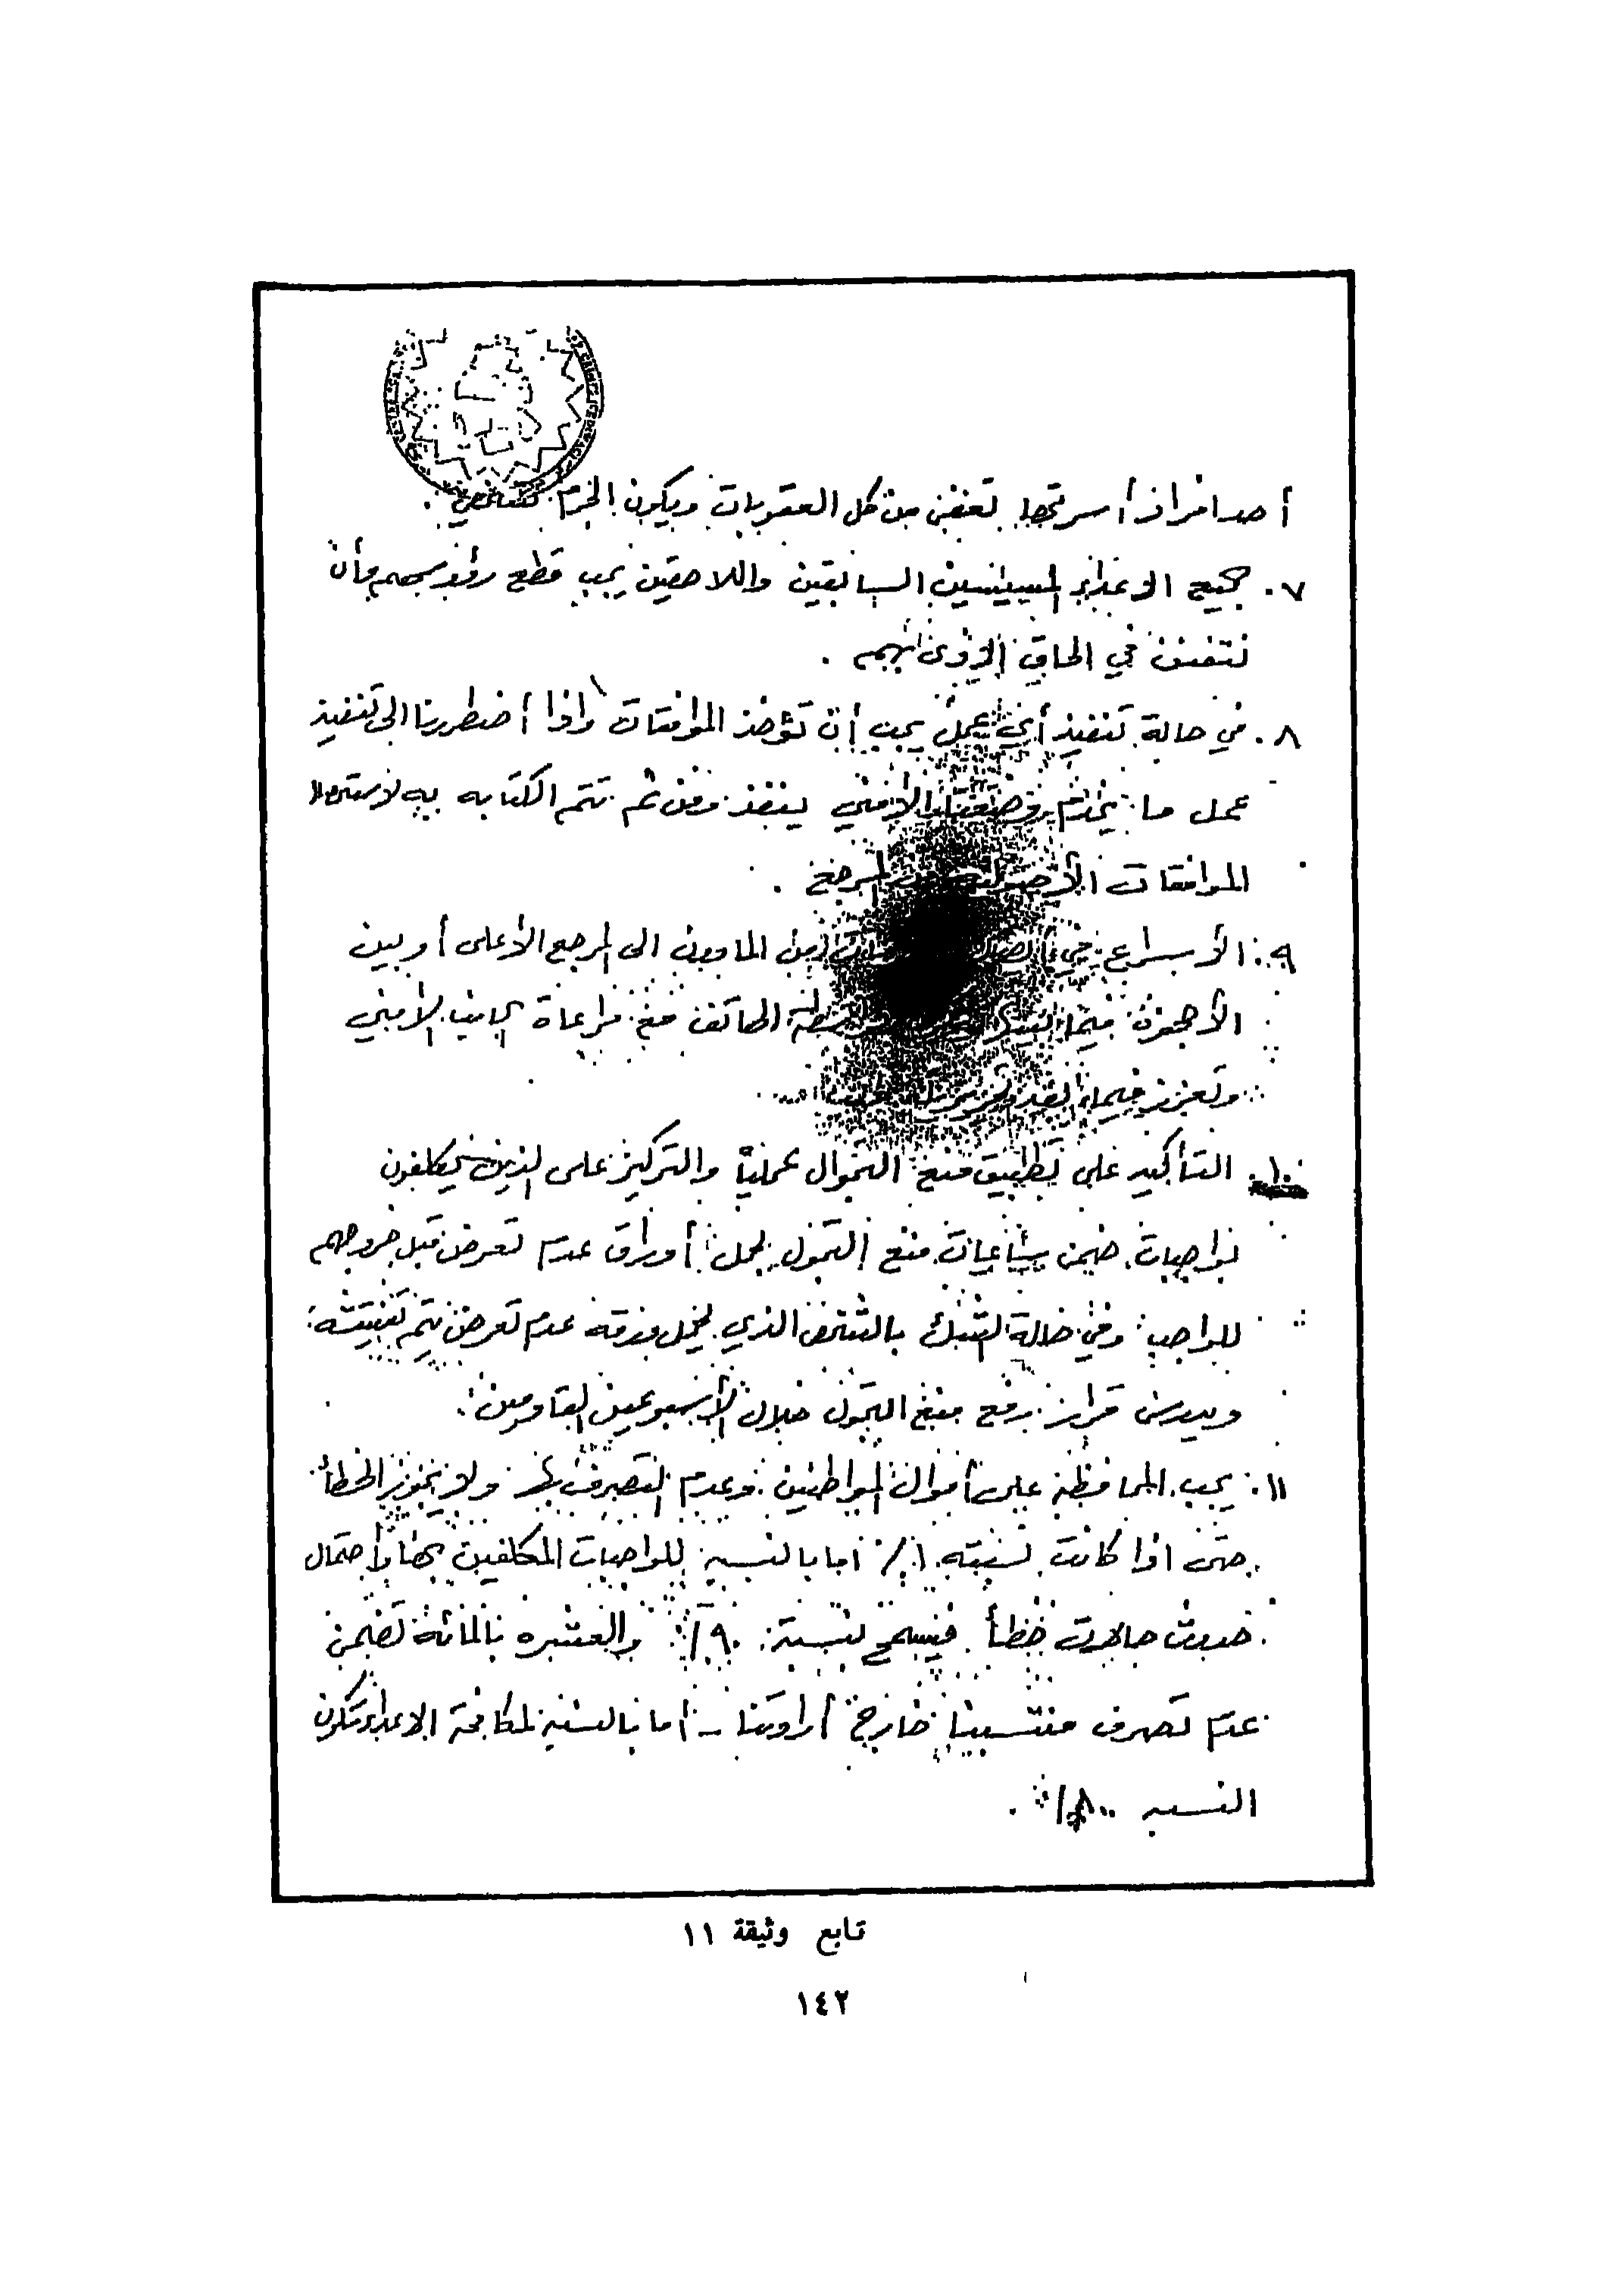 أحد افراد أسرتها تعفى من كل العقوبات ويكون الجرم
٧. جميع الاعداء السياسيين السابقين واللاحقين يجب قطع رؤوسهم وأن
نتفنن في الحاق الأذى بهم .
٨. في حالة تنفيذ أي عمل يجب أن تؤخذ الموافقات واذا أضطررنا الى تنفيذ
عمل ما يخدم الأمني ينفذ ومن ثم تتم الكتابه به لاستحصال
الموافقات المرجع .
٩. الأسراع في من المادون الى المرجع الأعلى أو بين
الأجهزة فيما بينها الهاتف مع مراعاة الجانب الأمني
وتعزيز فيما بعد
١٠. التأكيد على تطبيق منع التجوال عملياً والتركيز على الذين يكلفون
بواجبات ضمن ساعات منع التجول لحمل أوراق عدم تعرض قبل خروجهم
للواجب وفي حالة الشك بالشخص الذي يحمل ورقة عدم تعرض يتم تفتيشه
ويدرس قرار رفع منع التجول خلال الأسبوعين القادمين .
١١. يجب المحافظة على أموال المواطنين وعدم التصرف بها ولا يجوز الخطأ
حتى اذا كانت نسبته ١٪ أما بالنسبة للواجبات المكلفين بها وأحتمال
حدوث حالات خطأ فيسمح بنسبة ٩٠٪ والعشره بالمائة تضمن
عدم تصرف منتسبينا خارج أرادتنا - أما بالنسبة لمكافحة الاعداء تكون
النسبه
تابع وثيقة ١١
١٤٢